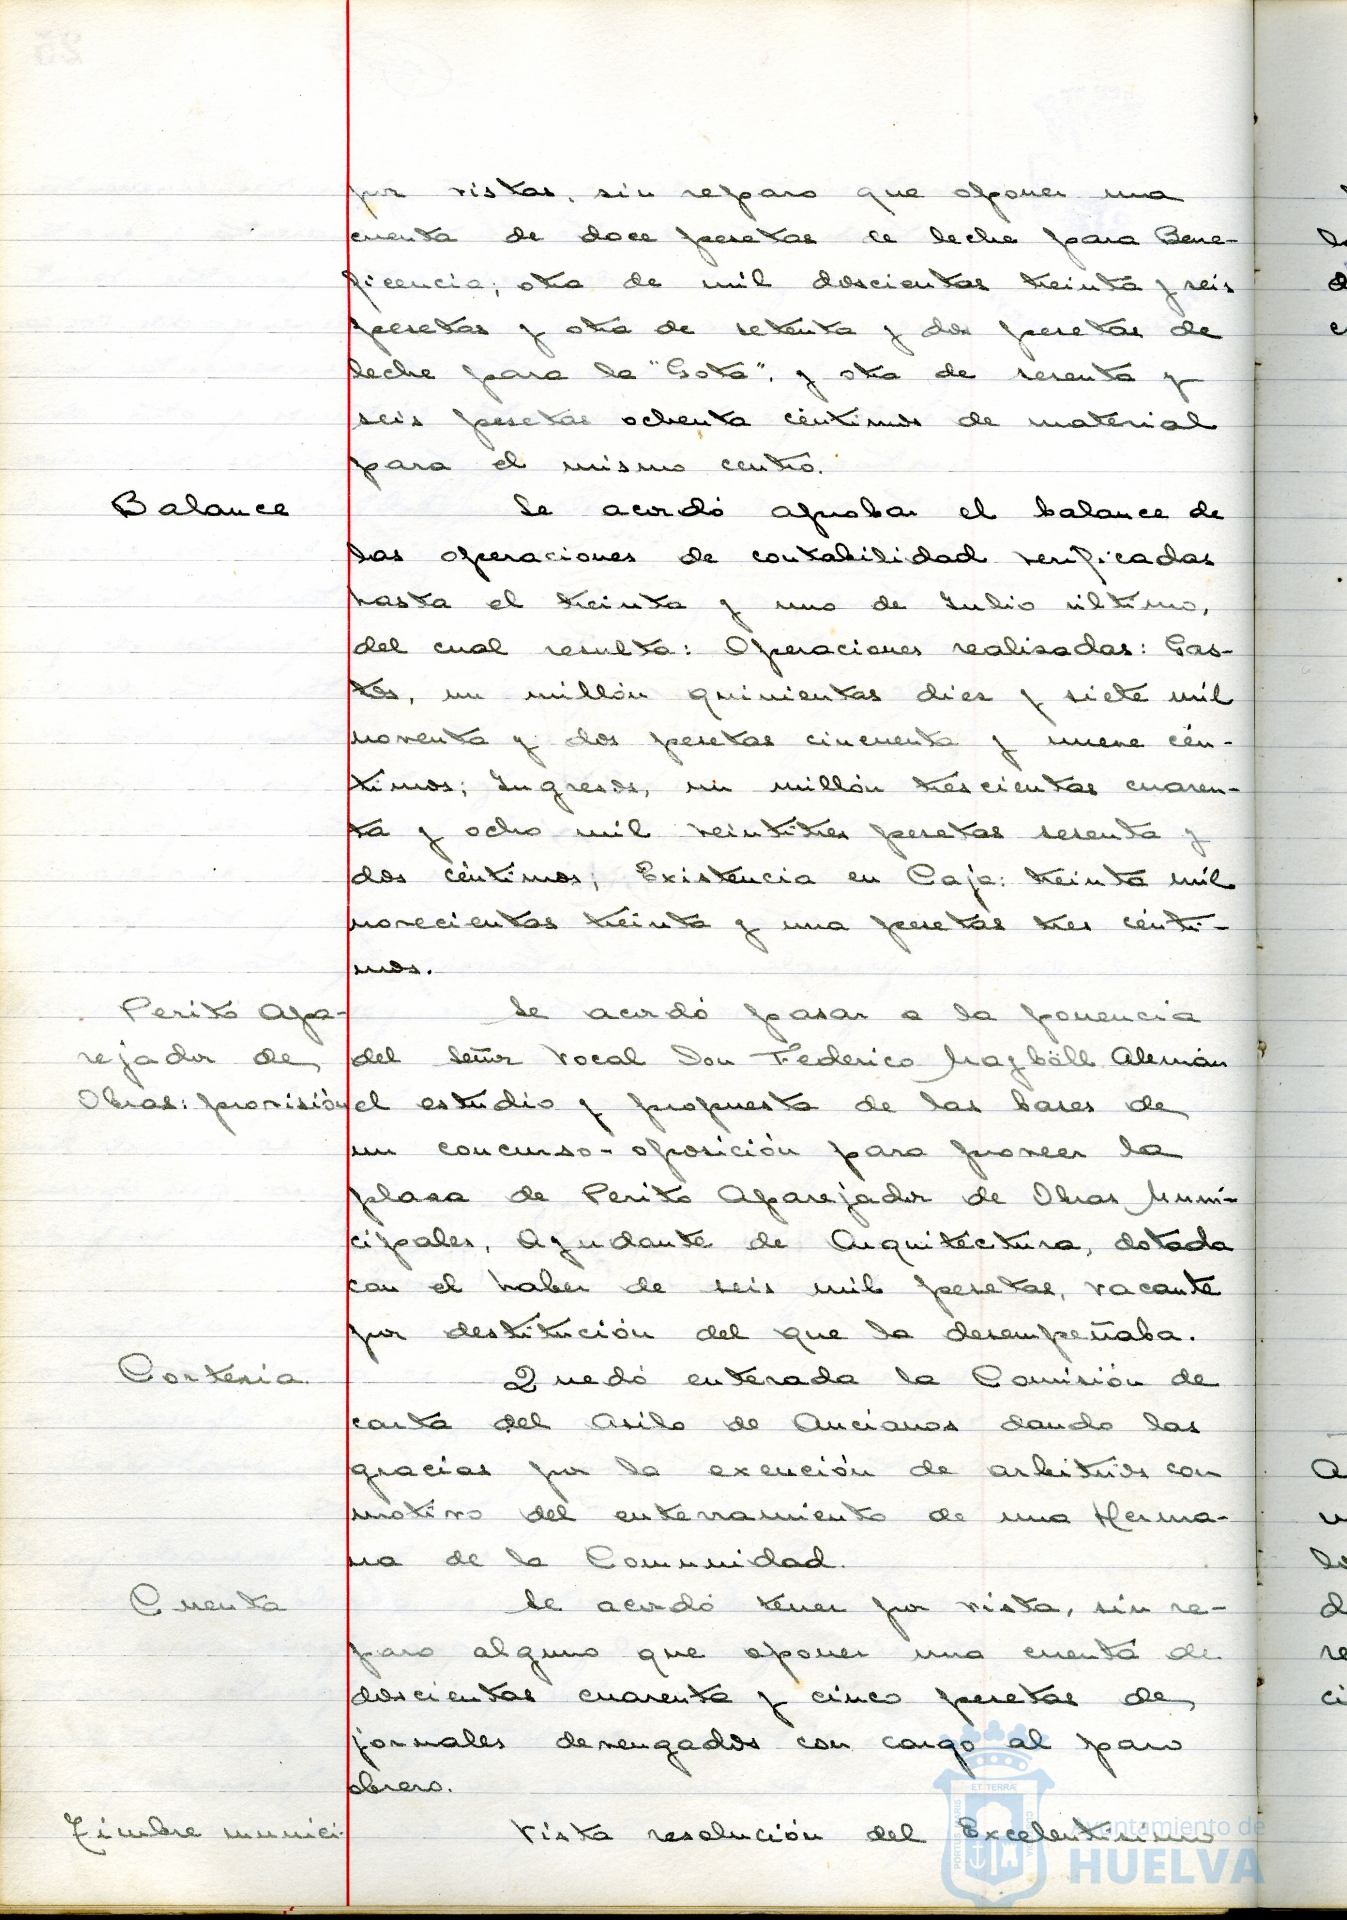 por vistas, sin reparo que oponer una
cuenta de doce pesetas de leche para Bene-
ficencia; otra de mil doscientas treinta y seis
pesetas y otra de setenta y dos pesetas de
leche para la "Gota", y otra de sesenta y
seis pesetas ochenta céntimos de material
para el mismo centro.
Balance
Se acordó aprobar el balance de
las operaciones de contabilidad verificadas
hasta el treinta y uno de Julio último,
del cual resulta: Operaciones realizadas: Gas-
tos, un millón quinientas diez y siete mil
noventa y dos pesetas cincuenta y nueve cén-
timos; Ingresos, un millón trescientas cuaren-
ta y ocho mil veintitres pesetas sesenta y
dos céntimos; Existencia en Caja: treinta mil
novecientas treinta y una pesetas tres cénti-
mos.
Perito Apa-
rejador de
Obras: provisión
Se acordó pasar a la ponencia
del Señor Vocal Don Federico Alemán
el estudio y propuesta de las bases de
un concurso-oposición para proveer la
plaza de Perito Aparejador de Obras Muni-
cipales, Ayudante de Arquitectura, dotada
con el haber de seis mil pesetas, vacante
por destitución del que la desempeñaba.
Cortesia
Quedó enterada la Comisión de
carta del Asilo de Ancianos dando las
gracias por la exención de arbitrios con
motivo del enterramiento de una Herma-
na de la Comunidad.
Cuenta
Se acordó tener por vista, sin re-
paro alguno que oponer una cuenta de
doscientas cuarenta y cinco pesetas de
jornales devengados con cargo al paro
obrero.
Timbre munici-
Vista resolución del Excelentísimo
ET TERRÆ
PORTUS MARIS
CUSTODIA
Ayuntamiento de
HUELVA